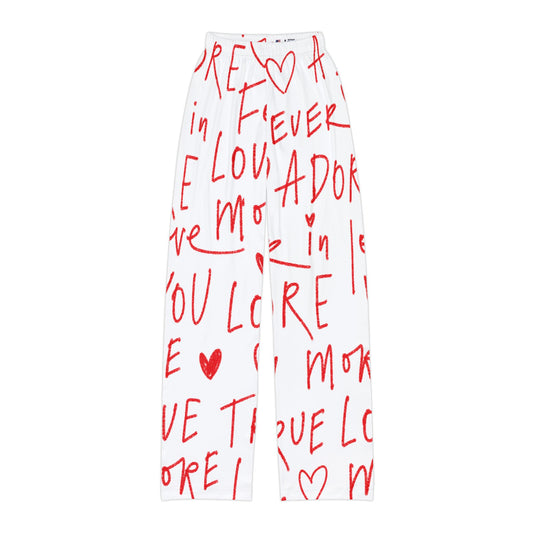 ORE A
in F EVER
E LOU ADOR
ve Mo in
YOU LO RE
E MORE
UE TRUE LO
ORE L M